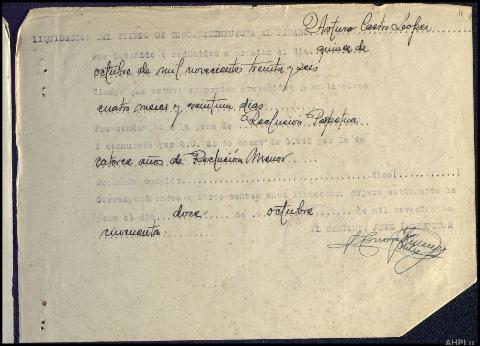 LIQUIDACION DEL TIEMPO DE CONDENA IMPUESTA AL PENADO D. Arturo Castro López
Fue detenido o reducido a prision el dia quince de
octubre de mil novecientos treinta y seis
Tiempo que estuvo en prision preventiva
cuatro meses y veintiun dias
Fue condenado a la pena de Reclusión Perpetua
Y conmutada por C.O. 25 de enero de 1.940 por la de
catorce años de Reclusión Menor
Debiendo cumplir dias
Correspondientes a otros tantos dejara extinguida la
pena el dia doce de octubre de mil novecientos
cincuenta
EL DIRECTOR
AHPLu